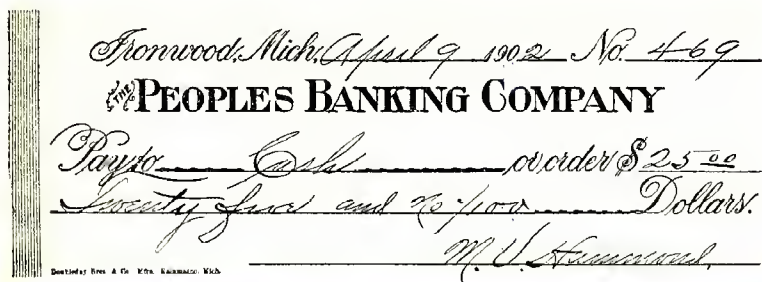 Ironwood, Mich, April 9 1902 No. 469
THE PEOPLES BANKING COMPANY
Pay to Cash or order $ 25 00
Twenty five and no/100 Dollars.
M. V. Hammond,
Doubleday Bros & Co Mfrs. Kalamazoo, Mich.